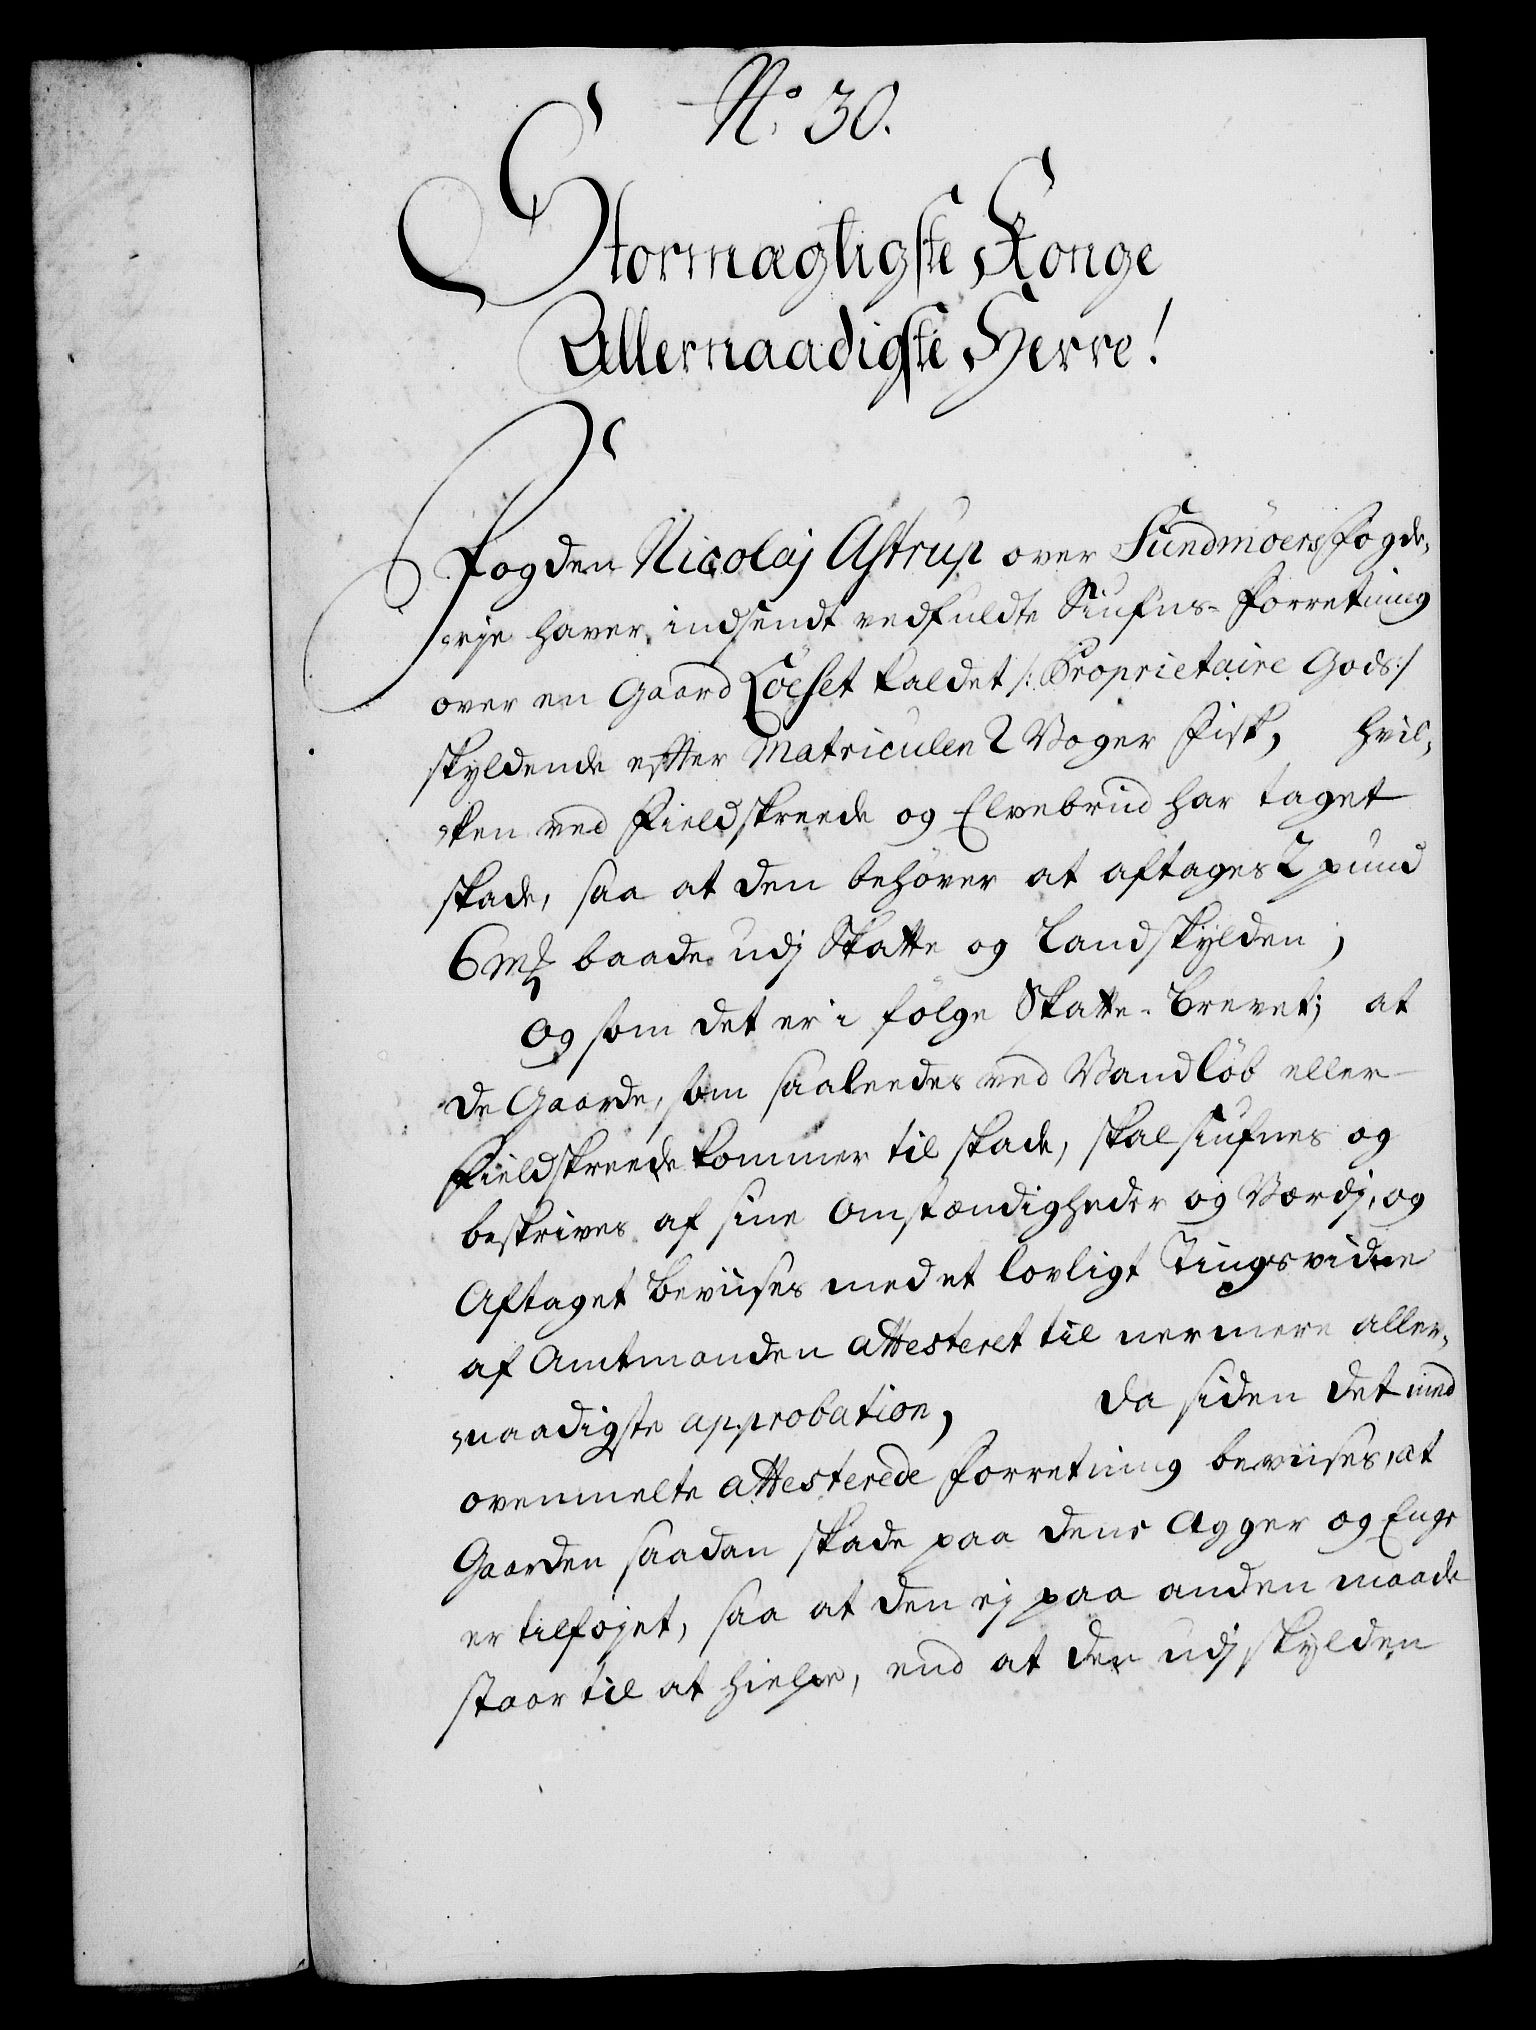 No. 30.
Stormægtigste Konge
Allernaadigste Herre!
Fogden Nicolaj Astrup over Sundmöers Fogde,
,,rje haver indsendt vedfuldte Siufns-Forretning
over en Gaard Löeset kaldet /: Proprietaire Gods:/
skyldende efter Matriculen 2 Voger Fisk, hvil,
,,ken ved Fieldskreede og Elvebrud har taget
skade, saa at den behöver at aftages 2 pund
6 mk baade udj Skatte og Landskylden;
Og som det er i fölge Skatte-Brevet; at
de Gaarde, som saaleedes ved Vandlöb eller
Fieldskreede kommer til skade, skal siufnes og
beskrives af sine Omstændigheder og Værdj, og
Aftaget beviises med et lovligt Tingsvidne
af Amtmanden attesteret til nermere aller,
,,naadigste approbation, da siden det med
ovenmelte attesterede Forretning beviises, at
Gaarden saadan skade paa dens Agger og Enge
er tilföjet, saa at den ej paa anden maade
staar til at hielpe, end at der udj skylden